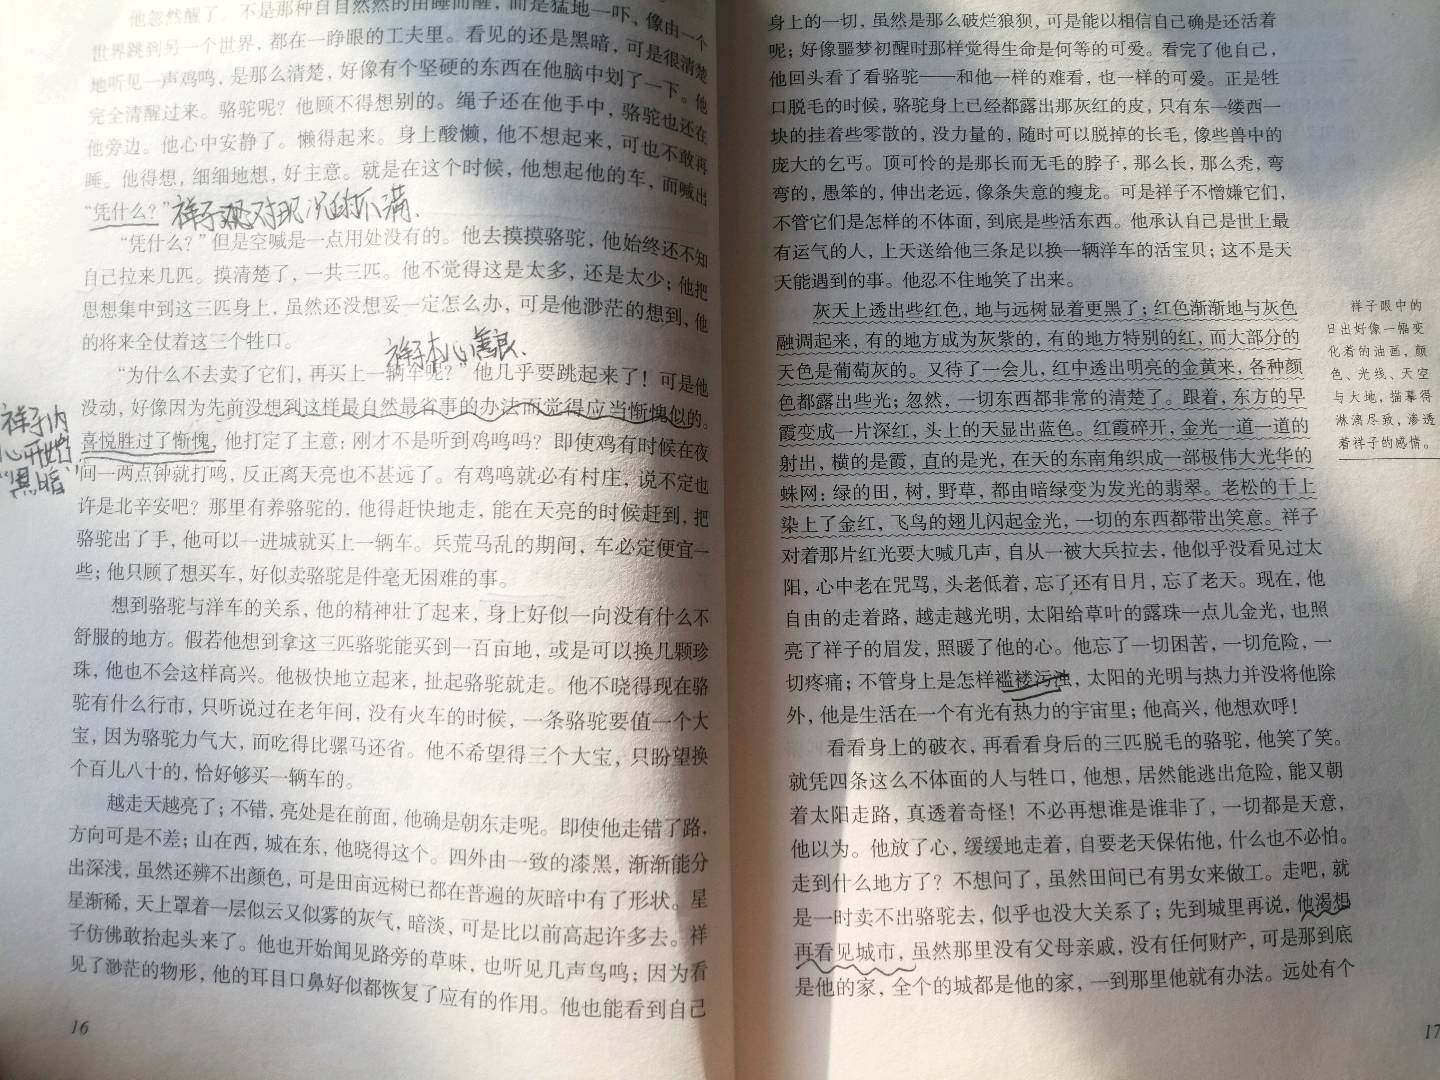 他忽然醒了。不是那种自自然然的由睡而醒,而是猛地一吓,像由一个
世界跳到另一个世界,都在一睁眼的工夫里。看见的还是黑暗,可是很清楚
地听见一声鸡鸣,是那么清楚,好像有个坚硬的东西在他脑中划了一下。他
完全清醒过来。骆驼呢?他顾不得想别的。绳子还在他手中,骆驼也还在
他旁边。他心中安静了。懒得起来。身上酸懒,他不想起来,可也不敢再
睡。他得想,细细地想,好主意。就是在这个时候,他想起他的车,而喊出
“凭什么?”
祥子对现况的不满.
“凭什么?”但是空喊是一点用处没有的。他去摸摸骆驼,他始终还不知
自己拉来几匹。摸清楚了,一共三匹。他不觉得这是太多,还是太少;他把
思想集中到这三匹身上,虽然还没想妥一定怎么办,可是他渺茫的想到,他
的将来全仗着这三个牲口。
祥子本心善良.
“为什么不去卖了它们,再买上一辆车呢?”他几乎要跳起来了!可是他
没动,好像因为先前没想到这样最自然最省事的办法而觉得应当惭愧似的。
喜悦胜过了惭愧,他打定了主意:刚才不是听到鸡鸣吗?即使鸡有时候在夜
间一两点钟就打鸣,反正离天亮也不甚远了。有鸡鸣就必有村庄,说不定也
许是北辛安吧?那里有养骆驼的,他得赶快地走,能在天亮的时候赶到,把
骆驼出了手,他可以一进城就买上一辆车。兵荒马乱的期间,车必定便宜一
些;他只顾了想买车,好似卖骆驼是件毫无困难的事。
祥子内
心开始
“黑暗”
想到骆驼与洋车的关系,他的精神壮了起来,身上好似一向没有什么不
舒服的地方。假若他想到拿这三匹骆驼能买到一百亩地,或是可以换几颗珍
珠,他也不会这样高兴。他极快地立起来,扯起骆驼就走。他不晓得现在骆
驼有什么行市,只听说过在老年间,没有火车的时候,一条骆驼要值一个大
宝,因为骆驼力气大,而吃得比骡马还省。他不希望得三个大宝,只盼望换
个百儿八十的,恰好够买一辆车的。
越走天越亮了;不错,亮处是在前面,他确是朝东走呢。即使他走错了路,
方向可是不差;山在西,城在东,他晓得这个。四外由一致的漆黑,渐渐能分
出深浅,虽然还辨不出颜色,可是田亩远树已都在普遍的灰暗中有了形状。星
星渐稀,天上罩着一层似云又似雾的灰气,暗淡,可是比以前高起许多去。祥
子仿佛敢抬起头来了。他也开始闻见路旁的草味,也听见几声鸟鸣;因为看
见了渺茫的物形,他的耳目口鼻好似都恢复了应有的作用。他也能看到自己
16
身上的一切,虽然是那么破烂狼狈,可是能以相信自己确是还活着
呢;好像噩梦初醒时那样觉得生命是何等的可爱。看完了他自己,
他回头看了看骆驼——和他一样的难看,也一样的可爱。正是牲
口脱毛的时候,骆驼身上已经都露出那灰红的皮,只有东一缕西一
块的挂着些零散的,没力量的,随时可以脱掉的长毛,像些兽中的
庞大的乞丐。顶可怜的是那长而无毛的脖子,那么长,那么秃,弯
弯的,愚笨的,伸出老远,像条失意的瘦龙。可是祥子不憎嫌它们,
不管它们是怎样的不体面,到底是些活东西。他承认自己是世上最
有运气的人,上天送给他三条足以换一辆洋车的活宝贝;这不是天
天能遇到的事。他忍不住地笑了出来。
灰天上透出些红色,地与远树显着更黑了;红色渐渐地与灰色
融调起来,有的地方成为灰紫的,有的地方特别的红,而大部分的
天色是葡萄灰的。又待了一会儿,红中透出明亮的金黄来,各种颜
色都露出些光;忽然,一切东西都非常的清楚了。跟着,东方的早
霞变成一片深红,头上的天显出蓝色。红霞碎开,金光一道一道的
射出,横的是霞,直的是光,在天的东南角织成一部极伟大光华的
蛛网:绿的田,树,野草,都由暗绿变为发光的翡翠。老松的干上
染上了金红,飞鸟的翅儿闪起金光,一切的东西都带出笑意。祥子
对着那片红光要大喊几声,自从一被大兵拉去,他似乎没看见过太
阳,心中老在咒骂,头老低着,忘了还有日月,忘了老天。现在,他
自由的走着路,越走越光明,太阳给草叶的露珠一点儿金光,也照
亮了祥子的眉发,照暖了他的心。他忘了一切困苦,一切危险,一
切疼痛;不管身上是怎样褴褛污浊,太阳的光明与热力并没将他除
外,他是生活在一个有光有热力的宇宙里;他高兴,他想欢呼!
看看身上的破衣,再看看身后的三匹脱毛的骆驼,他笑了笑。
就凭四条这么不体面的人与牲口,他想,居然能逃出危险,能又朝
着太阳走路,真透着奇怪!不必再想谁是谁非了,一切都是天意,
他以为。他放了心,缓缓地走着,自要老天保佑他,什么也不必怕。
走到什么地方了?不想问了,虽然田间已有男女来做工。走吧,就
是一时卖不出骆驼去,似乎也没大关系了;先到城里再说,他渴想
再看见城市,虽然那里没有父母亲戚,没有任何财产,可是那到底
是他的家,全个的城都是他的家,一到那里他就有办法。远处有个
祥子眼中的
日出好像一幅变
化着的油画,颜
色、光线、天空
与大地,描摹得
淋漓尽致,渗透
着祥子的感情。
17